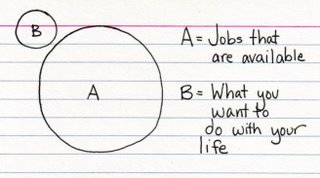 B
A
A = Jobs that
are available
B = What you
want to
do with your
life